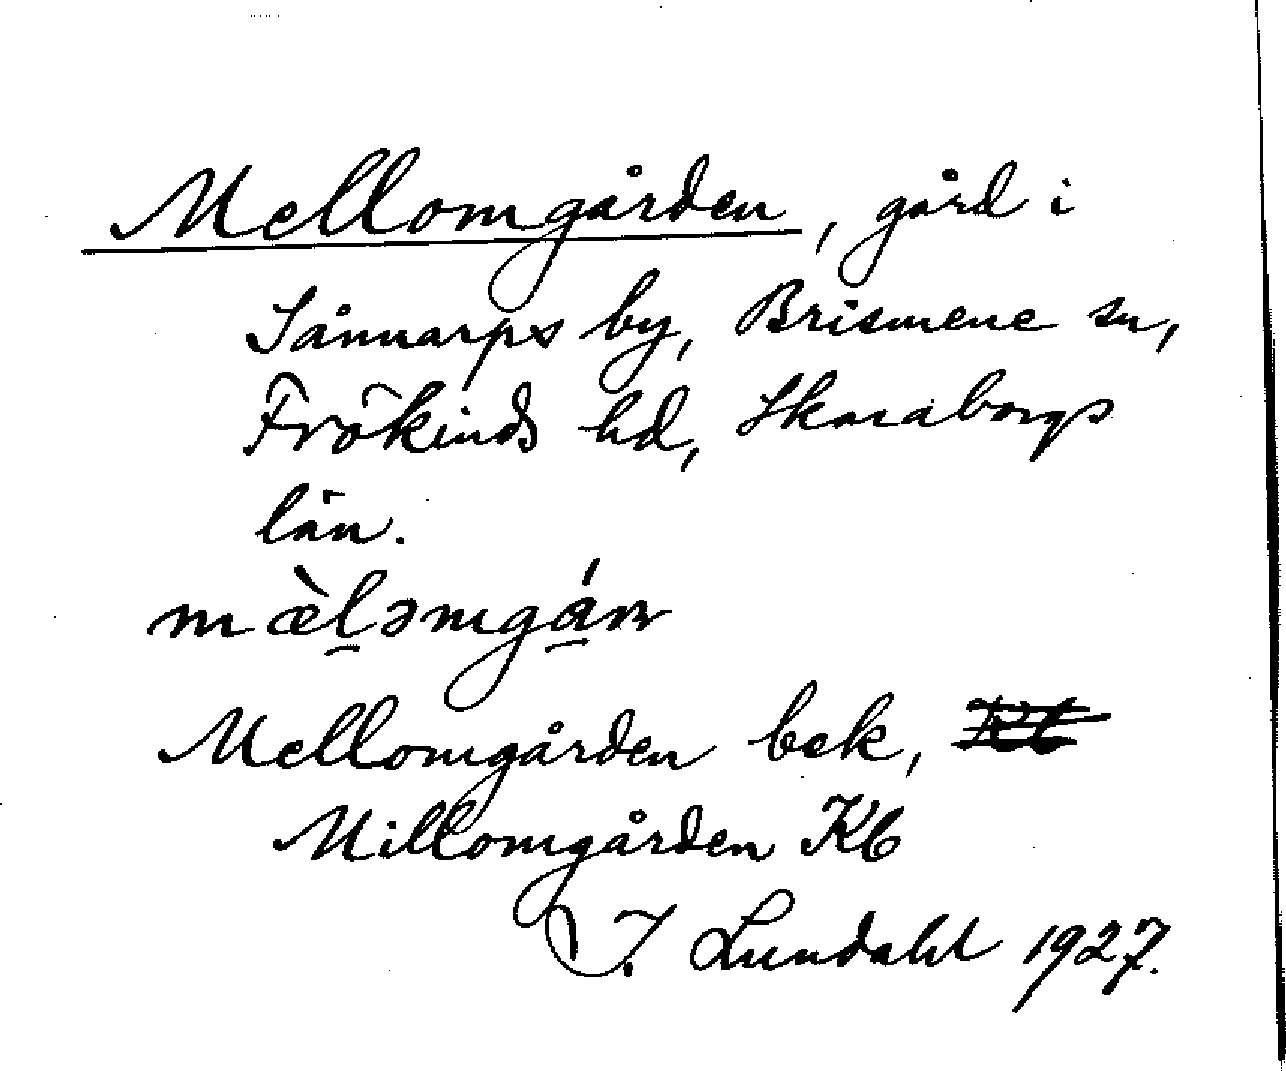 Mellomgården, gård i
Sånnarps by, Brismene sn,
Frökinds hd, Skaraborgs
län.
mæ̀l̠əmgá̠rn
Mellomgården bek,
Millomgården Kb
I. Lundahl 1927.